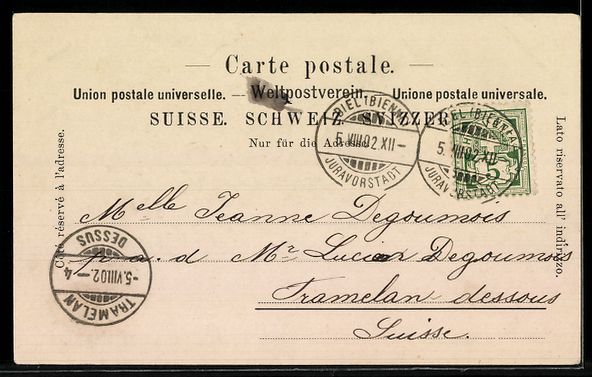 Carte postale.
Union postale universelle. — Weltpostverein. — Unione postale universale.
SUISSE. SCHWEIZ. SVIZZERA.
Nur für die Adresse.
Côté réservé à l'adresse.
Lato riservato all' indirizzo.
BIEL (BIENNE)
5. VIII. 02. XII –
JURAVORSTADT
BIEL (BIENNE)
5. VIII. 02. XII –
JURAVORSTADT
5
Melle Jeanne Degoumois
p. a. d Mr. Lucien Degoumois
Tramelan-dessous
Suisse.
TRAMELAN
-5. VIII 02. – 4
DESSUS